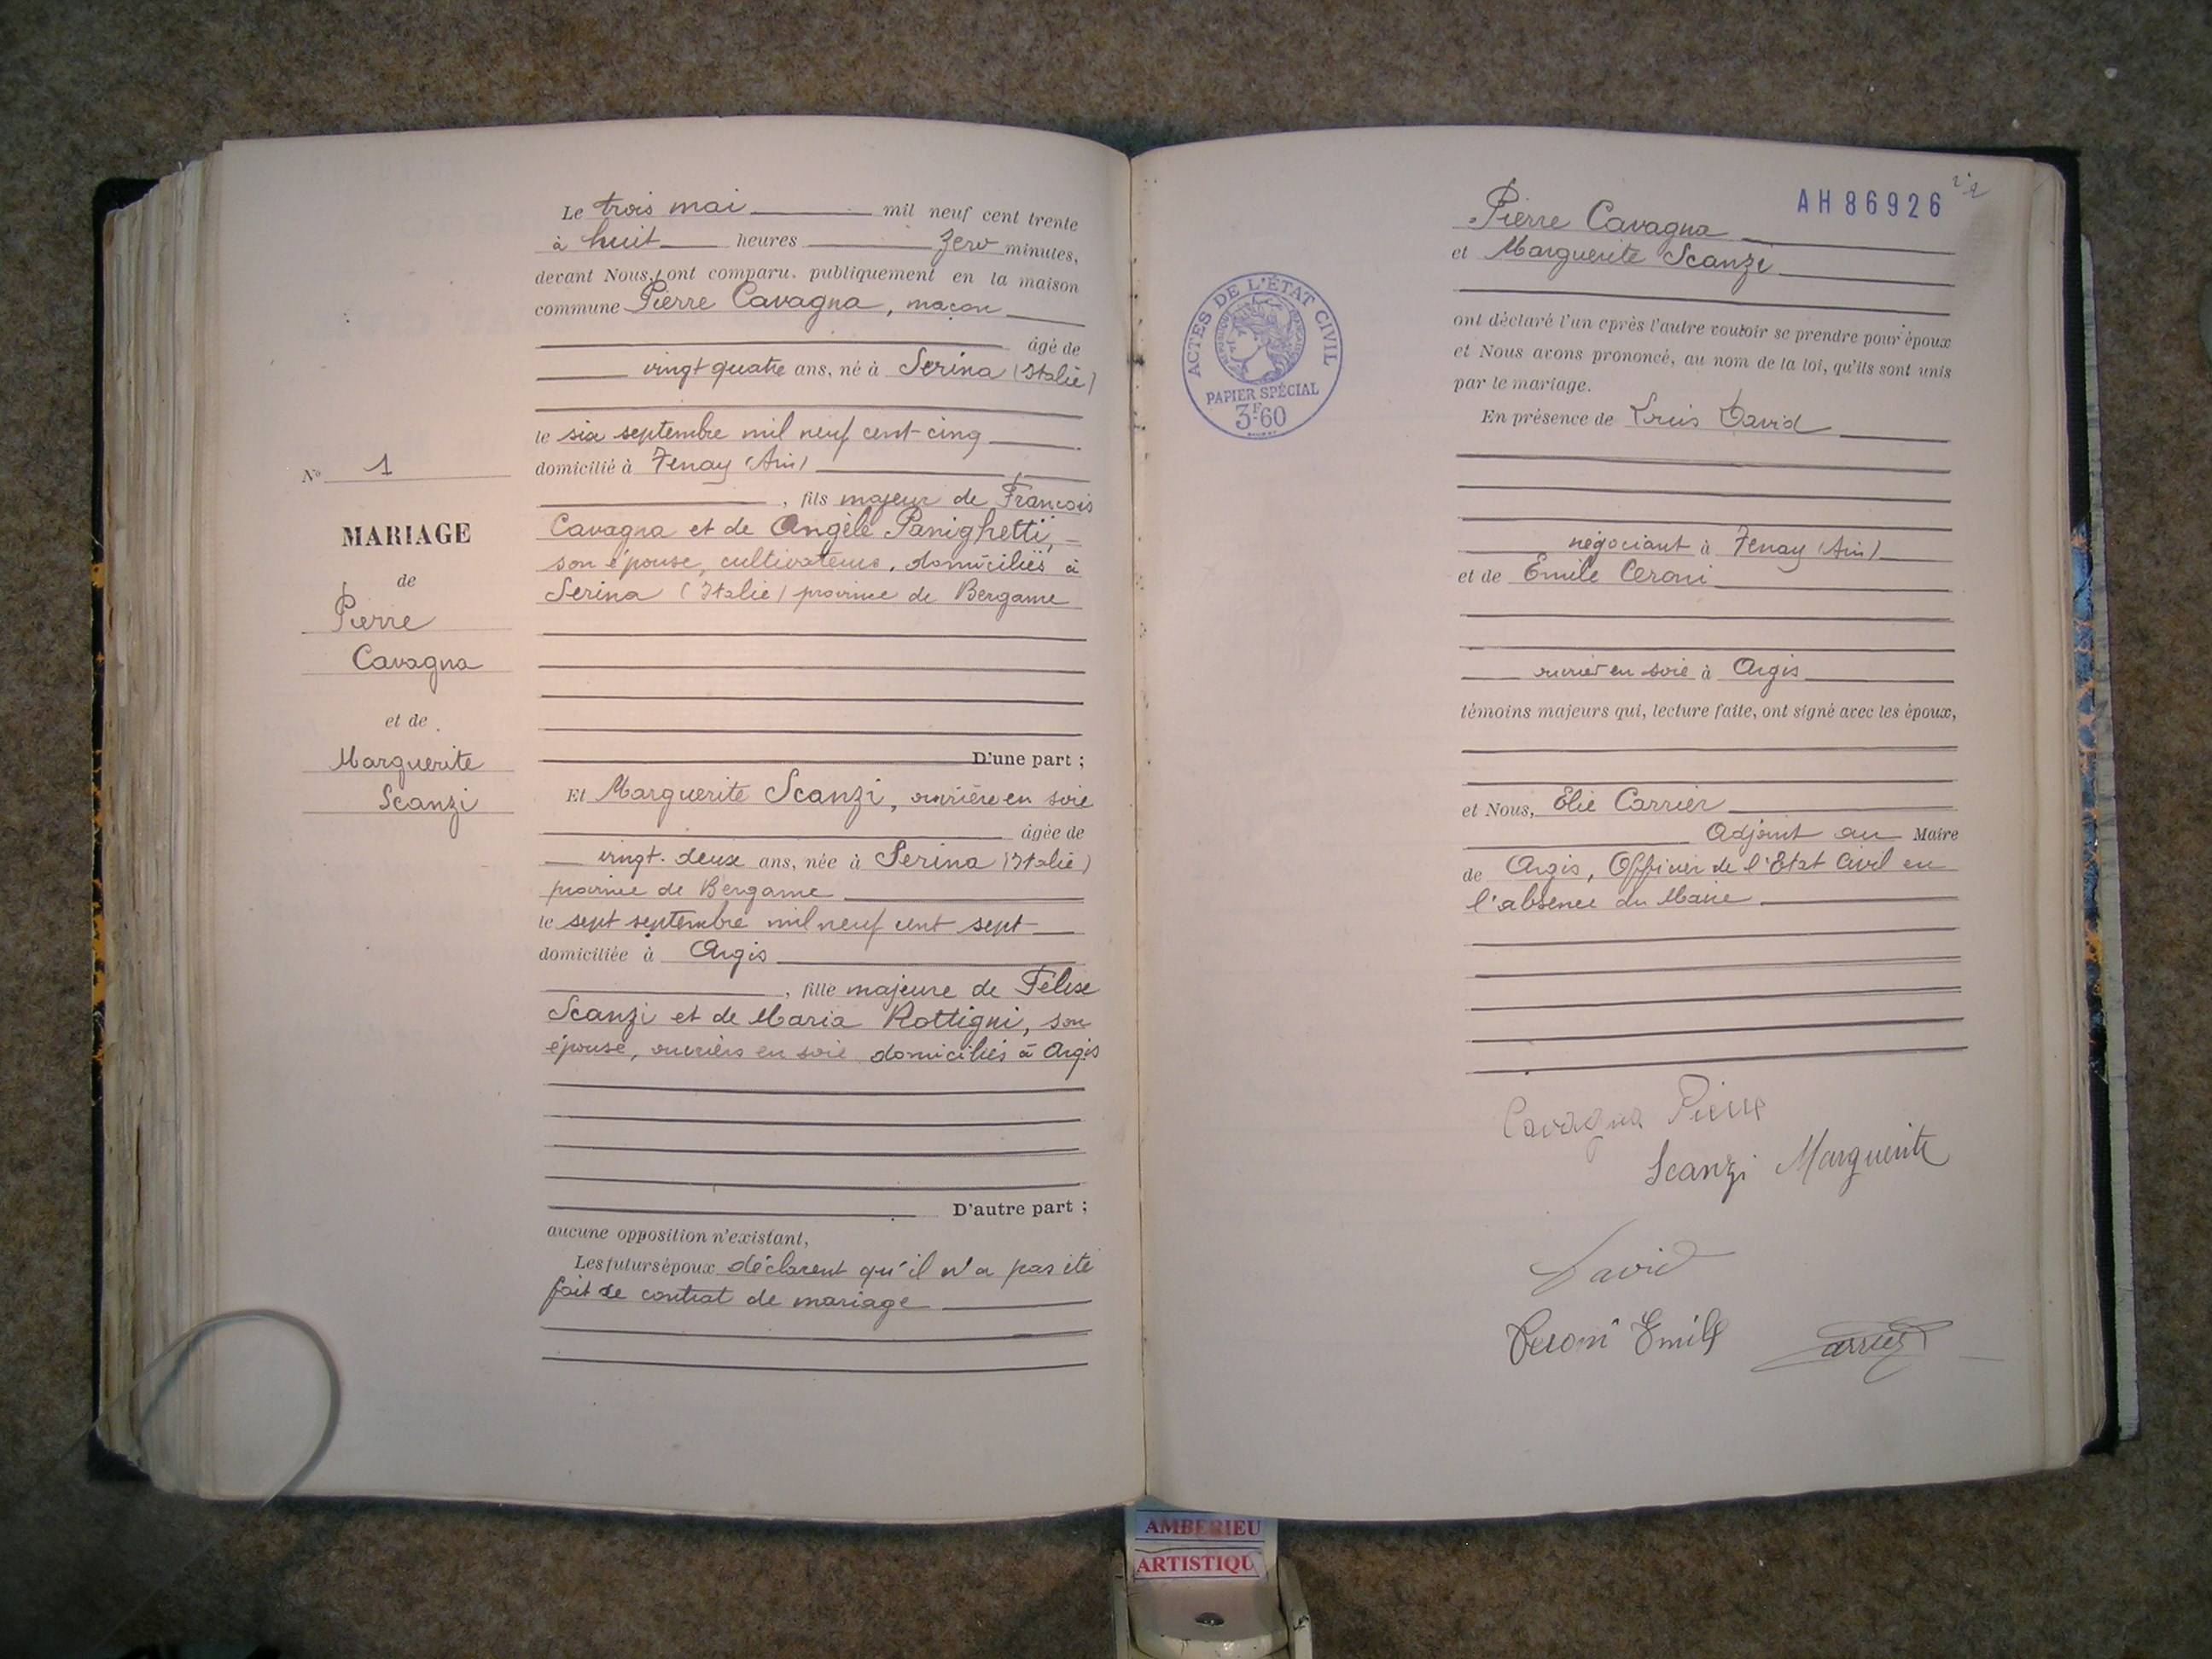 Le trois mai mil neuf cent trente
à huit heures zero minutes,
devant Nous, ont comparu publiquement en la maison
commune Pierre Cavagna, maçon
âgé de
vingt quatre ans, né à Serina (Italie)
le six septembre mil neuf cent cinq
domicilié à Tenay (Ain)
, fils majeur de François
Cavagna et de Angèle Panighetti,
son épouse, cultivateurs, domiciliés à
Serina (Italie) province de Bergame
D'une part ;
Et Marguerite Scanzi, ouvrière en soie
âgée de
vingt-deux ans, née à Serina (Italie)
province de Bergame
le sept septembre mil neuf cent sept
domiciliée à Argis
, fille majeure de Felise
Scanzi et de Maria Rottigni, son
épouse, ouvriers en soie domiciliés à Argis
D'autre part ;
aucune opposition n'existant,
Les futurs époux déclarent qu'il n'a pas été
fait de contrat de mariage
N° 1
MARIAGE
de
Pierre
Cavagna
et de
Marguerite
Scanzi
AH 86926
Pierre Cavagna
et Marguerite Scanzi
ont déclaré l'un après l'autre vouloir se prendre pour époux
et Nous avons prononcé, au nom de la loi, qu'ils sont unis
par le mariage.
En présence de Louis David
négociant à Tenay (Ain)
et de Emile Ceroni
ouvrier en soie à Argis
témoins majeurs qui, lecture faite, ont signé avec les époux,
et Nous, Elie Carrier
Adjoint au Maire
de Argis, Officier de l'Etat Civil en
l'absence du Maire
Cavagna Pierre
Scanzi Marguerite
David
Ceroni Emile
Carrier
ACTES DE L'ÉTAT CIVIL
PAPIER SPÉCIAL
3F60
AMBERIEU
ARTISTIQU